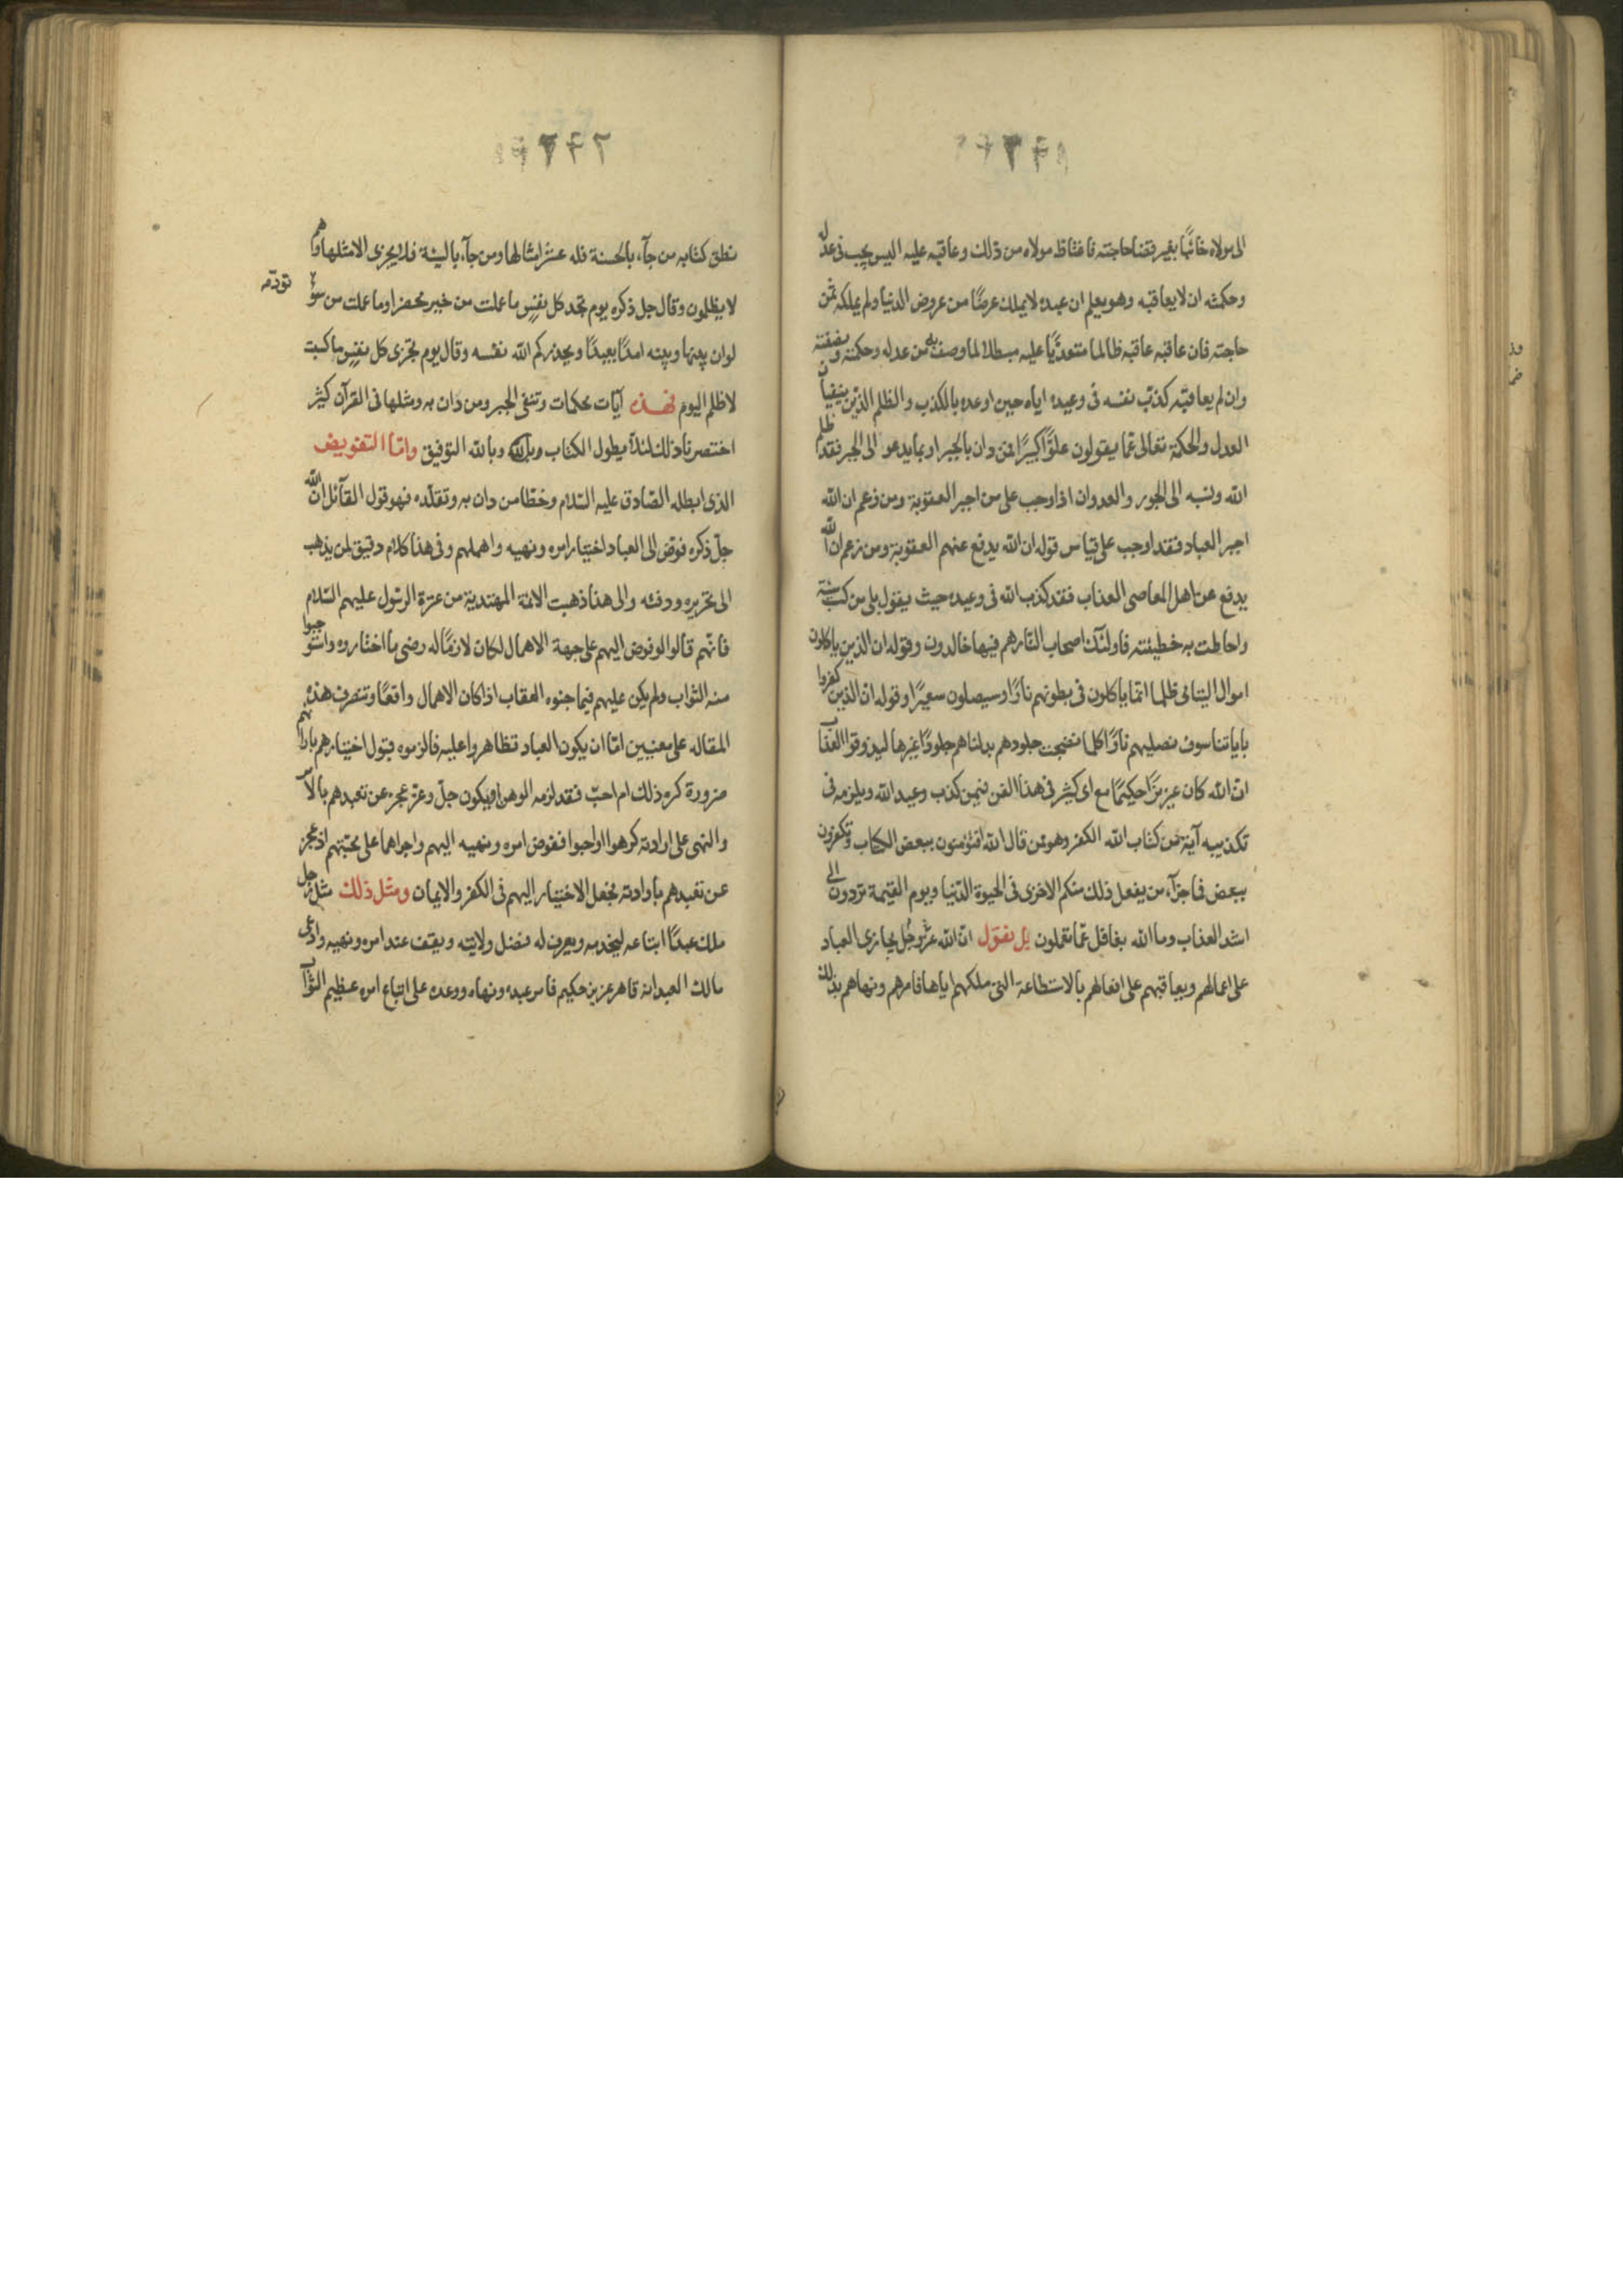 الى مولاه خائبًا بغير قضا حاجته فاغتاظ مولاه من ذلك وعاقبه عليه اليس يجب فى عدله
وحكمته ان لا يعاقبه وهو يعلم ان عبده لا يملك عرضًا من عروض الدنيا ولم يملكه ثمن
حاجته فان عاقبه عاقبه ظالما متعدّيًا عليه مبطلا لما وصف من عدله وحكمته ونصفته
وان لم يعاقبه كذب نفسه فى وعيده اياه حين اوعده بالكذب والظلم الذين ينفيان
العدل والحكمة تعالى عمّا يقولون علوًّا كبيرًا فمن دان بالجبر او بما يدعو الى الجبر فقد ظلم
الله ونسبه الى الجور والعدوان اذا وجب على من اجبر العقوبة ومن زعم ان الله
اجبر العباد فقد اوجب على قياس قوله ان الله يدفع عنهم العقوبة ومن زعم ان الله
يدفع عن اهل المعاصى العذاب فقد كذب الله فى وعيده حيث يقول بلى من كسب سيئة
واحاطت به خطيئته فاولئك اصحاب النار هم فيها خالدون وقوله ان الذين ياكلون
اموال اليتامى ظلما انما ياكلون فى بطونهم نارًا وسيصلون سعيرًا وقوله ان الذين كفروا
باياتنا سوف نصليهم نارًا كلما نضجت جلودهم بدلناهم جلودًا غيرها ليذوقوا العذاب
انّ الله كان عزيزًا حكيمًا مع اى كثير فى هذا الفن فيمن كذب وعيد الله ويلزمه فى
تكذيبه آية من كتاب الله الكفر وهو ممن قال الله افتؤمنون ببعض الكتاب وتكفرون
ببعض فما جزآء من يفعل ذلك منكم الا خزى فى الحيوة الدّنيا ويوم القيمة تردون الى
اشد العذاب وما الله بغافل عمّا تعملون بل نقول انّ الله عزّ وجلّ يجازى العباد
على اعمالهم ويعاقبهم على افعالهم بالاستطاعة التى ملكهم اياها فامرهم ونهاهم بذلك
نطق كتابه من جآء بالحسنة فله عشر امثالها ومن جآء بالسيئة فلا يجزى الا مثلها وهم
لا يظلمون وقال جل ذكره يوم تجد كل نفسٍ ما عملت من خير محضرا وما عملت من سوء
تودّ
لو ان بينها وبينه امدًا بعيدًا ويحذركم الله نفسه وقال يوم تجزى كل نفسٍ ما كسبت
لا ظلم اليوم فهذه آيات محكمات وتنفى الجبر ومن دان به ومثلها فى القرآن كثير
اختصرنا ذلك لئلا يطول الكتاب وبالله التوفيق وامّا التفويض
الذى ابطله الصّادق عليه السّلام وخطّا من دان به وتقلّده فهو قول القآئل انّ الله
جلّ ذكره فوّض الى العباد اختيار امره ونهيه واهملهم وفى هذا كلام دقيق لمن يذهب
الى تحريره ودقته والى هذا ذهبت الائمة المهتدية من عترة الرسول عليهم السّلام
فانّهم قالوا لو فوض اليهم على جهة الاهمال لكان لازمًا له رضى ما اختاروه واستوجبوا
منه الثواب ولم يكن عليهم فيما جنوه العقاب اذا كان الاهمال واقعًا وتنصرف هذه
المقاله على معنيين امّا ان يكون العباد تظاهروا عليه فالزموه قبول اختيارهم بارائهم
ضرورة كره ذلك ام احبّ فقد لزمه الوهن او يكون جلّ وعزّ عجز عن تعبدهم بالامر
والنهى على ارادته كرهوا او احبوا ففوض امره ونهيه اليهم واجراهما على محبّتهم اذ عجز
عن تعبدهم بارادته فجعل الاختيار اليهم فى الكفر والايمان ومثل ذلك مثل رجل
ملك عبدًا ابتاعه ليخدمه ويعرف له فضل ولايته ويقف عند امره ونهيه وادّعى
مالك العبد انه قاهر عزيز حكيم فامر عبده ونهاه ووعده على اتباع امره عظيم الثّواب